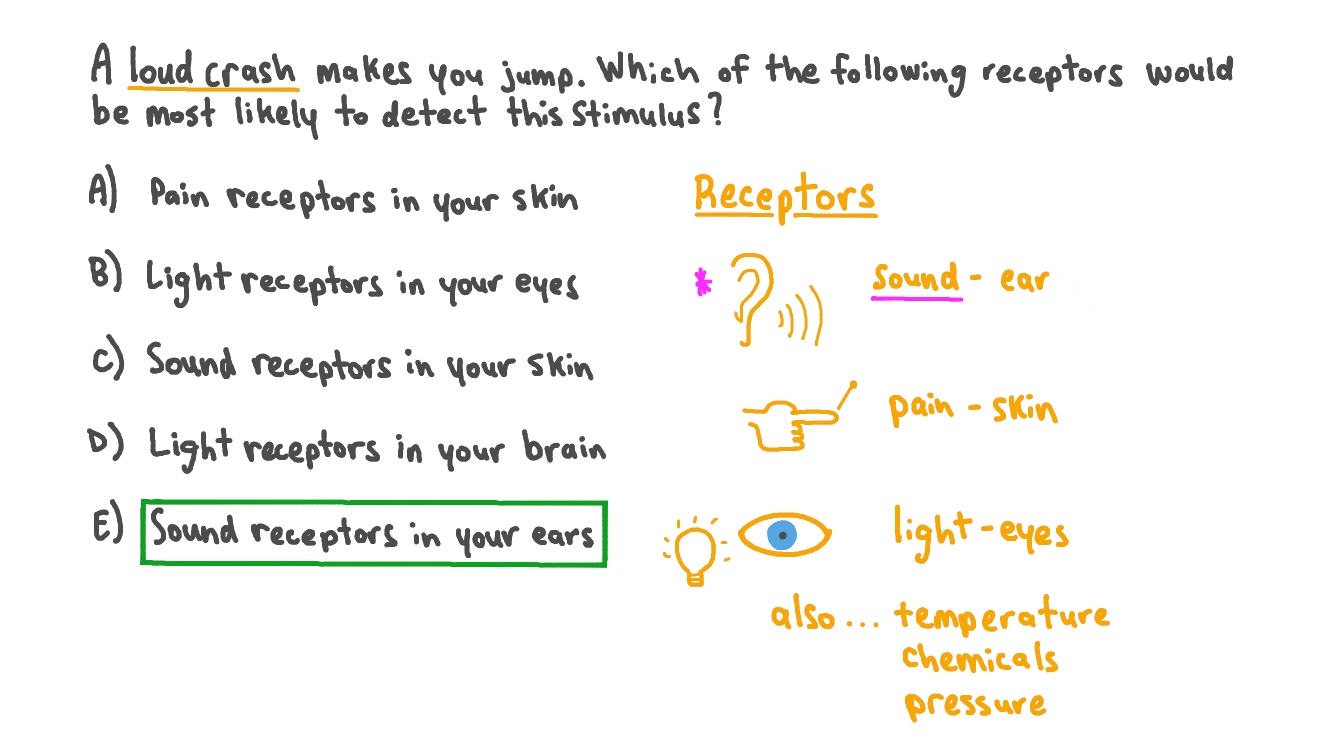 A loud crash makes you jump. Which of the following receptors would
be most likely to detect this stimulus?
A) Pain receptors in your skin
B) Light receptors in your eyes
C) Sound receptors in your skin
D) Light receptors in your brain
E) Sound receptors in your ears
Receptors
* sound - ear
pain - skin
light - eyes
also... temperature
chemicals
pressure